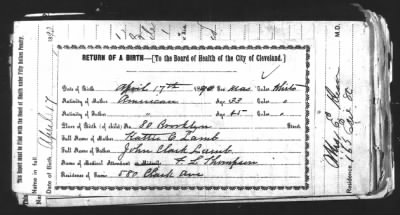 RETURN OF A BIRTH—[To the Board of Health of the City of Cleveland.]
Date of Birth April 17th 1890 Sex Mas. Color White
Nativity of Mother American Age 33 Color "
Nativity of Father " Age 45 Color "
Place of Birth (of child) No. 80 Brooklyn Street
Full Name of Mother Hattie C. Lamb
Full Name of Father John Clark Lamb
Name of Medical Attendant or Midwife F. L. Thompson
Residence of Same 580 Clark Ave
This Board must be Filed with the Board of Health under Fifty Dollars Penalty.
Name in full
April 17
M.D.
Residence 165